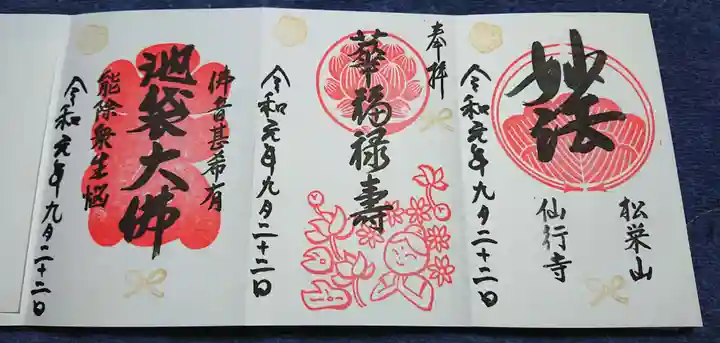 妙法
松栄山
仙行寺
令和元年九月二十二日
奉拝
華福禄寿
令和元年九月二十二日
佛音甚希有
池袋大佛
能除衆生悩
令和元年九月二十二日